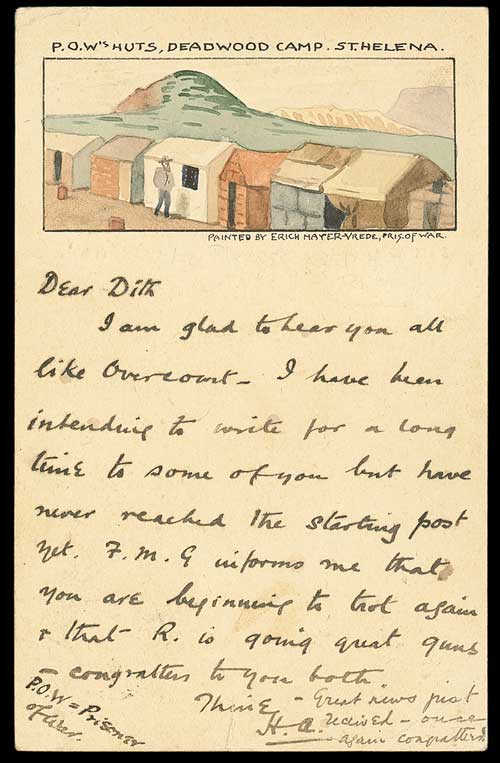 P.O.W'S HUTS, DEADWOOD CAMP. ST. HELENA.
PAINTED BY ERICH MAYER-VREDE, PRIS. OF WAR.
Dear Dith
I am glad to hear you all
like Overcourt - I have been
intending to write for a long
time to some of you but have
never reached the starting post
yet. F. M. G informs me that
you are beginning to trot again
& that R. is going great guns
- congratters to you both.
Thine - Great news just
H. A. recieved - once
again congratters.
P.O.W = Prisoner
of War.